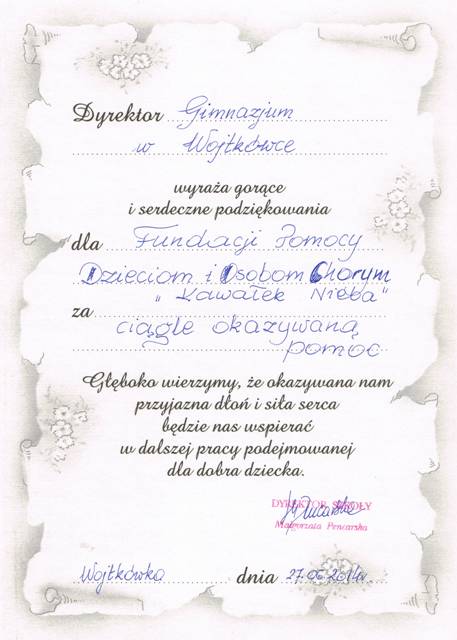 Dyrektor Gimnazjum
w Wojtkówce
wyraża gorące
i serdeczne podziękowania
dla Fundacji Pomocy
Dzieciom i Osobom Chorym
"Kawałek Nieba"
za ciągle okazywaną
pomoc
Głęboko wierzymy, że okazywana nam
przyjazna dłoń i siła serca
będzie nas wspierać
w dalszej pracy podejmowanej
dla dobra dziecka.
DYREKTOR SZKOŁY
Małgorzata Pencarska
Wojtkówka dnia 27.06.2014r.